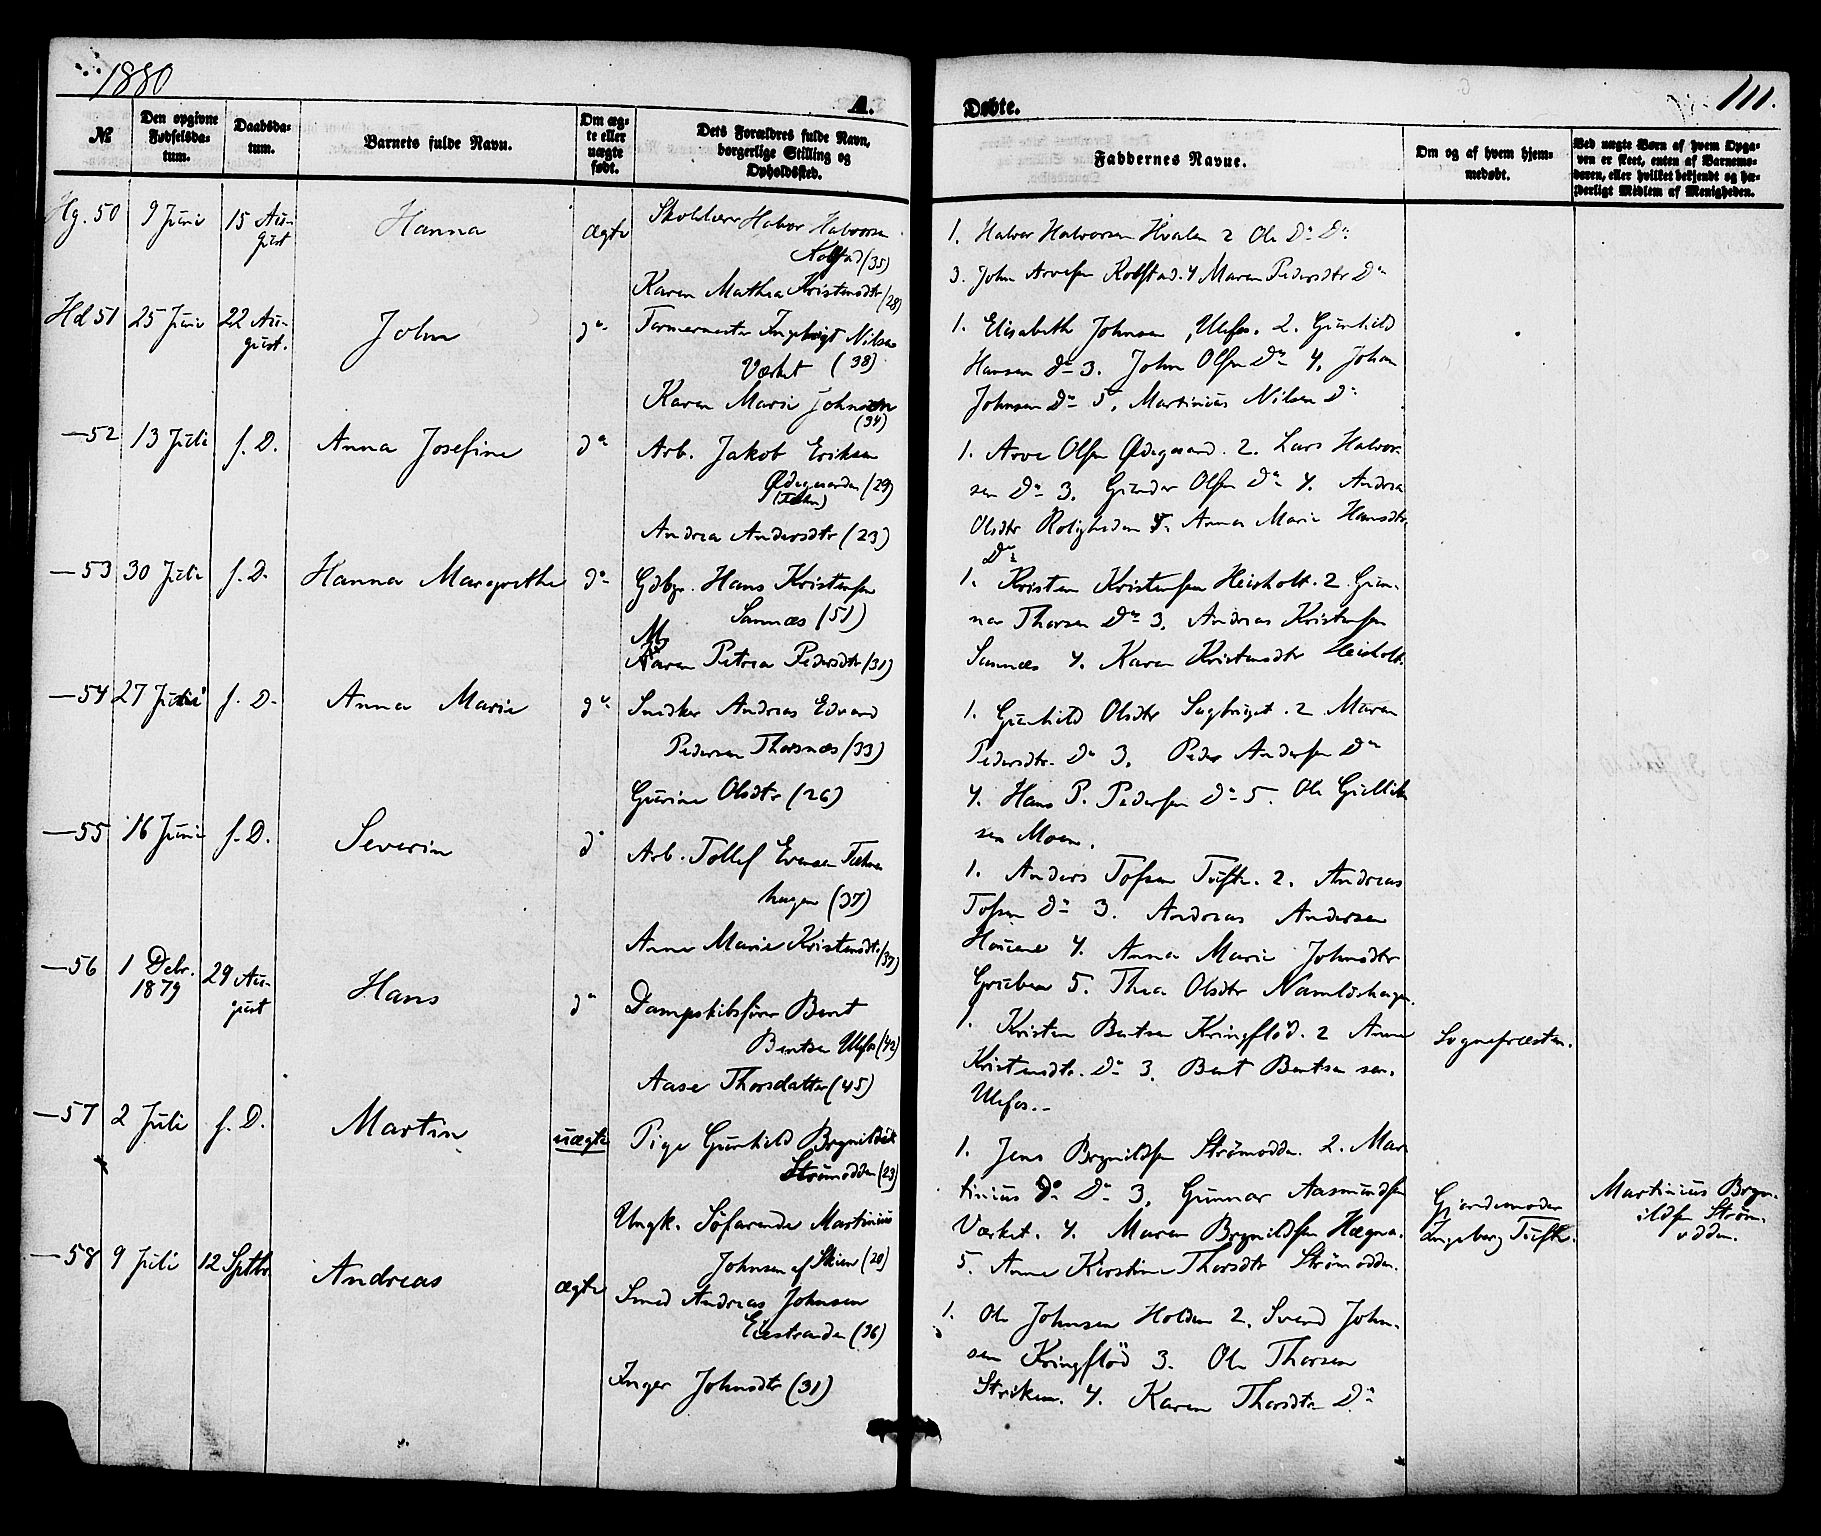 1880
A.
Døbte.
111.
№
Den opgivne Fødselsdatum.
Daabsdatum.
Barnets fulde Navn.
Om ægte eller uægte født.
Dets Forældres fulde Navn, borgerlige Stilling og Opholdssted.
Faddernes Navne.
Om og af hvem hjemmedøbt.
Ved uægte Børn af hvem Opgaven er skeet, enten af Barnemoderen, eller hvilket bekjendt og hæderligt Midlem af Menigheden.
Hg. 50 9 Juni 15 August Hanna ægte
Halvor Halvorsen
(35)
Karen Mathea Kristensdtr (28)
1. Halvor Halvorsen Hvalen 2 Ole Do Do
3. John Arvesen Kobstad. 4 Maren Pedersdtr Do
Hd 51 25 Juni 22 August. John do
Formermester Ingebrigt Nilsen
Værket (38)
Karen Marie Johnsen
(34)
1. Elisabeth Johnsen, Ulefos. 2. Gunhild
Hansen do 3. John Olsen Do 4. Johan
Johnsen Do 5. Martinius Nilsen Do
—52 13 Juli s. D. Anna Josefine do
Arb. Jakob Eriksen
Ødegaarden (29)
Andrea Andersdtr (23)
1. Arve Olsen Ødegaard. 2. Lars Halvor-
sen Do 3. Gunder Olsen Do 4. Andrea
Olsdtr Roligheden 5. Anna Marie Hansdtr
Do
—53 30 Juli s. D. Hanna Margrethe do
Gdbr. Hans Kristensen
Sannæs (51)
Maren Petrea Pedersdtr (31)
1. Kristen Kristensen Heisholt. 2 Gun-
nar Thorsen Do 3. Andreas Kristensen
Sannæs 4. Karen Kristensdtr Heisholt.
—54 27 Juni s. D. Anna Marie do
Snedker Andreas Edvard
Pedersen Thorsnæs (33)
Gurine Olsdtr (26)
1. Gunhild Olsdtr Sagbruget. 2 Maren
Pedersdtr. Do 3. Peder Andersen Do
4. Hans P. Pedersen Do 5. Ole Gullik
sen Moen.
—55 16 Juni s. D. Severin do
Arb. Tollef Evensen Tufte
hagen (37)
Anne Marie Kristensdtr (37)
1. Anders Tofsen Tufte. 2. Andreas
Tofsen Do 3. Andreas Andersen
4. Anna Marie Johnsdtr
Gruben 5. Thea Olsdtr
—56 1 Debr. 1879 29 August Hans do
Dampskibsfører Bent
Bentsen Ulefos (42)
Aase Thorsdatter (45)
1. Kristen Bentsen Kringflöd. 2 Anne
Kristensdtr. Do 3. Bent Bentsen sen.
Ulefos.—
Sognepræsten.
—57 2 Juli s. D. Martin uægte
Pige Gunhild Brynildsdtr
Strømodden (23)
Ungk. Søfarende Martinius
Johnsen af Skien (20)
1. Jens Brynildsen Strømodden. 2. Mar
tinius Do Do 3. Gunnar Aasmundsen
Værket. 4. Maren Brynildsen Hægna.
5. Anne Kirstine Thorsdtr Strømodden.
Gjordemoder
Ingeborg Tufte.
Martinius Bryn-
ildsen Strøm-
odden.
—58 9 Juli 12 Septbr. Andreas ægte
Smed Andreas Johnsen
Eiestranden (36)
Inger Johnsdtr (31)
1. Ole Johnsen Holden 2. Svend John-
sen Kringflöd 3. Ole Thorsen
Striken. 4. Karen Thorsdtr Do